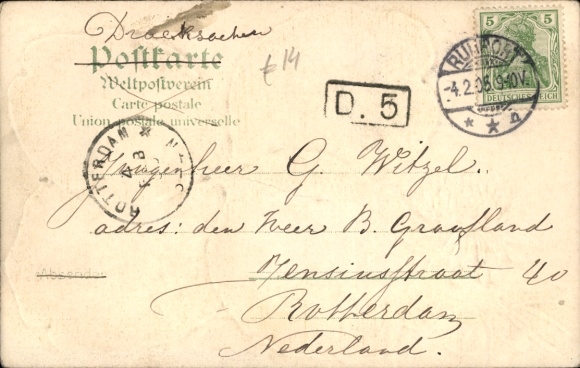 Drucksachen
£ 14
Postkarte
Weltpostverein
Carte postale
Union postale universelle
5 5
DEUTSCHES REICH
RUHRORT
-4.2.05.9-10V.
* * a
D. 5
ROTTERDAM *
Jongenheer G. Witzel.
adres: den Heer B. Graafland
Absender
Jensiusstraat 40
Rotterdam
Nederland.